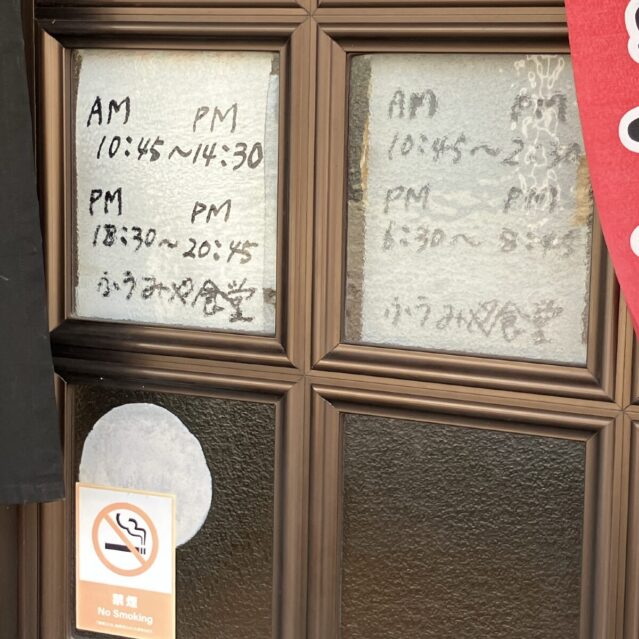 AM PM
10:45～14:30
PM PM
18:30～20:45
ふうみや食堂
AM PM
10:45～2:30
PM PM
6:30～8:45
ふうみや食堂
禁煙
No Smoking